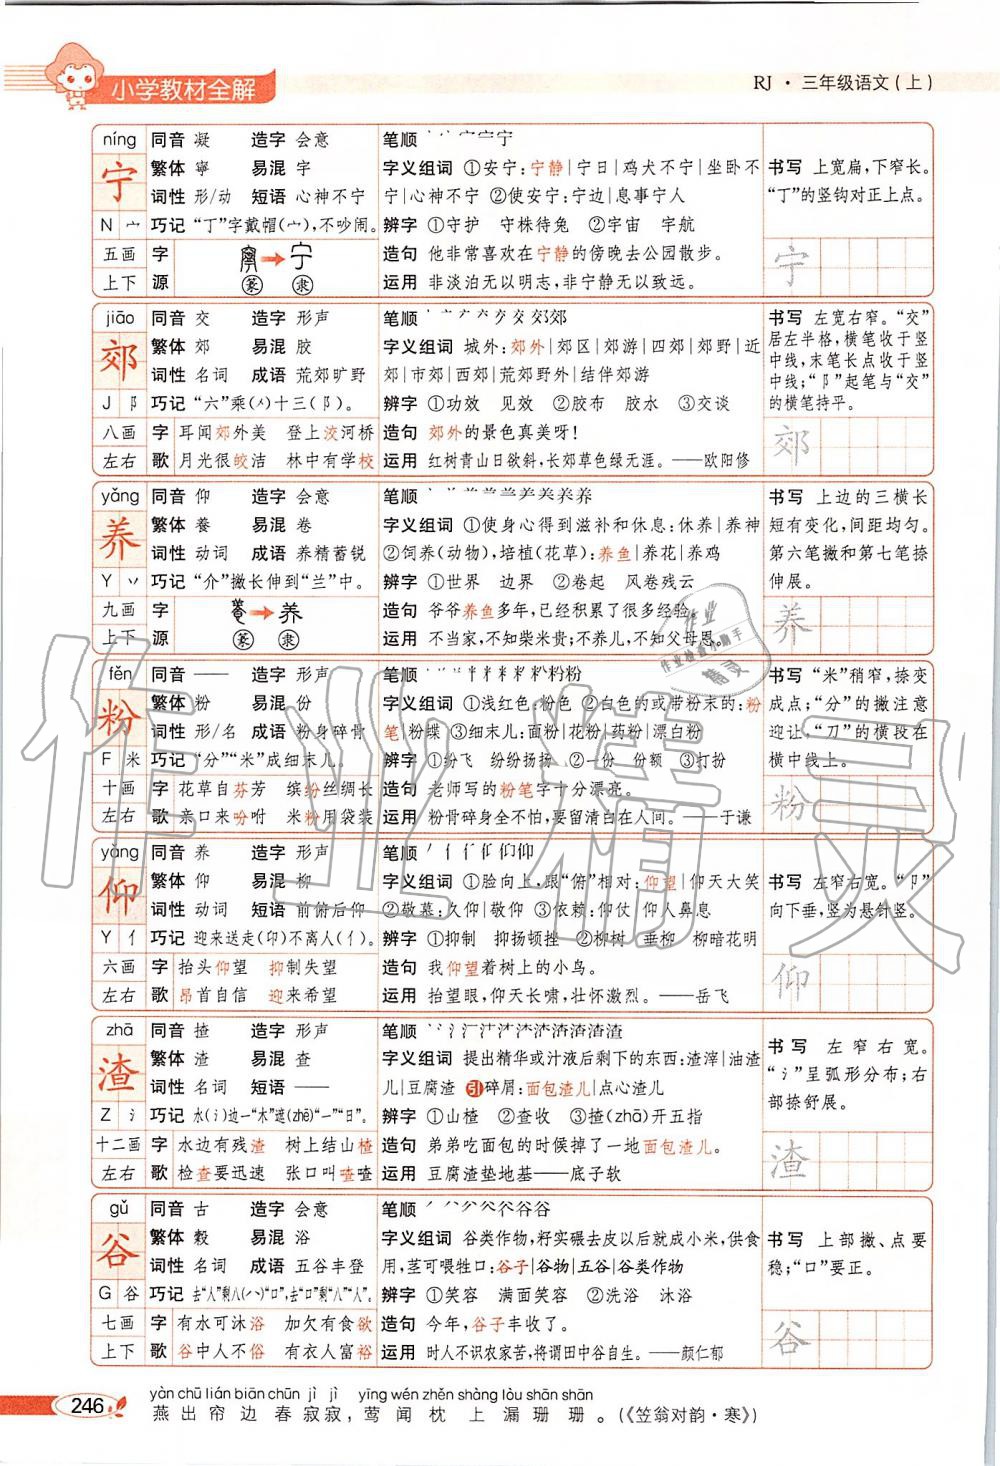 小学教材全解
RJ·三年级语文(上)
níng 同音 凝 造字 会意 笔顺
宁 繁体 寧 易混 宇 字义组词 ①安宁:宁静|宁日|鸡犬不宁|坐卧不
词性 形/动 短语 心神不宁 宁|心神不宁 ②使安宁:宁边|息事宁人
N 宀 巧记 “丁”字戴帽(宀),不吵闹。 辨字 ①守护 守株待兔 ②宇宙 宇航
五画 字 造句 他非常喜欢在宁静的傍晚去公园散步。
上下 源 篆 隶 运用 非淡泊无以明志,非宁静无以致远。
书写 上宽扁,下窄长。
“丁”的竖钩对正上点。
宁
jiāo 同音 交 造字 形声 笔顺
郊 繁体 郊 易混 胶 字义组词 城外:郊外|郊区|郊游|四郊|郊野|近
词性 名词 成语 荒郊旷野 郊|市郊|西郊|荒郊野外|结伴郊游
J 阝 巧记 “六”乘(㐅)十三(阝)。 辨字 ①功效 见效 ②胶布 胶水 ③交谈
八画 字 耳闻郊外美 登上洨河桥 造句 郊外的景色真美呀!
左右 歌 月光很皎洁 林中有学校 运用 红树青山日欲斜,长郊草色绿无涯。——欧阳修
书写 左宽右窄。“交”
居左半格,横笔收于竖
中线,末笔长点收于竖
中线;“阝”起笔与“交”
的横笔持平。
郊
yǎng 同音 仰 造字 会意 笔顺
养 繁体 養 易混 卷 字义组词 ①使身心得到滋补和休息:休养|养神
词性 动词 成语 养精蓄锐 ②饲养(动物),培植(花草):养鱼|养花|养鸡
Y 丷 巧记 “介”撇长伸到“兰”中。 辨字 ①世界 边界 ②卷起 风卷残云
九画 字 养 造句 爷爷养鱼多年,已经积累了很多经验。
上下 源 篆 隶 运用 不当家,不知柴米贵;不养儿,不知父母恩。
书写 上边的三横长
短有变化,间距均匀。
第六笔撇和第七笔捺
伸展。
养
fěn 同音 —— 造字 形声 笔顺
粉 繁体 粉 易混 份 字义组词 ①浅红色:粉色 ②白色的或带粉末的:粉
词性 形/名 成语 粉身碎骨 笔|粉蝶 ③细末儿:面粉|花粉|药粉|漂白粉
F 米 巧记 “分”“米”成细末儿。 辨字 ①纷飞 纷纷扬扬 ②一份 份额 ③打扮
十画 字 花草自芬芳 缤纷丝绸长 造句 老师写的粉笔字十分漂亮。
左右 歌 亲口来吩咐 米粉用袋装 运用 粉骨碎身全不怕,要留清白在人间。——于谦
书写 “米”稍窄,捺变
成点;“分”的撇注意
迎让,“刀”的横段在
横中线上。
粉
yǎng 同音 养 造字 形声 笔顺
仰 繁体 仰 易混 柳 字义组词 ①脸向上,跟“俯”相对:仰望|仰天大笑
词性 动词 短语 前俯后仰 ②敬慕:久仰|敬仰 ③依赖:仰仗 仰人鼻息
Y 亻 巧记 迎来送走(卬)不离人(亻)。 辨字 ①抑制 抑扬顿挫 ②柳树 垂柳 柳暗花明
六画 字 抬头仰望 抑制失望 造句 我仰望着树上的小鸟。
左右 歌 昂首自信 迎来希望 运用 抬望眼,仰天长啸,壮怀激烈。——岳飞
书写 左窄右宽。“卩”
向下垂,竖为悬针竖。
仰
zhā 同音 揸 造字 形声 笔顺
渣 繁体 渣 易混 查 字义组词 提出精华或汁液后剩下的东西:渣滓|油渣
词性 名词 短语 —— 儿|豆腐渣 引碎屑:面包渣儿|点心渣儿
Z 氵 巧记 水(氵)边一“木”遮(zhē)“一”“日”。 辨字 ①山楂 ②查收 ③揸(zhā)开五指
十二画 字 水边有残渣 树上结山楂 造句 弟弟吃面包的时候掉了一地面包渣儿。
左右 歌 检查要迅速 张口叫喳喳 运用 豆腐渣垫地基——底子软
书写 左窄右宽。
“氵”呈弧形分布;右
部捺舒展。
渣
gǔ 同音 古 造字 会意 笔顺
谷 繁体 穀 易混 浴 字义组词 谷类作物,籽实碾去皮以后就成小米,供食
词性 名词 成语 五谷丰登 用,茎可喂牲口:谷子|谷物|五谷|谷类作物
G 谷 巧记 去“人”剩八(八)“口”,去“口”剩“八”“人”。 辨字 ①笑容 满面笑容 ②洗浴 沐浴
七画 字 有水可沐浴 加欠有食欲 造句 今年,谷子丰收了。
上下 歌 谷中人不俗 有衣人富裕 运用 时人不识农家苦,将谓田中谷自生。——颜仁郁
书写 上部撇、点要
稳;“口”要正。
谷
246
yàn chū lián biān chūn jì jì yīng wén zhěn shàng lòu shān shān
燕出帘边春寂寂,莺闻枕上漏珊珊。(《笠翁对韵·寒》)
作业精灵